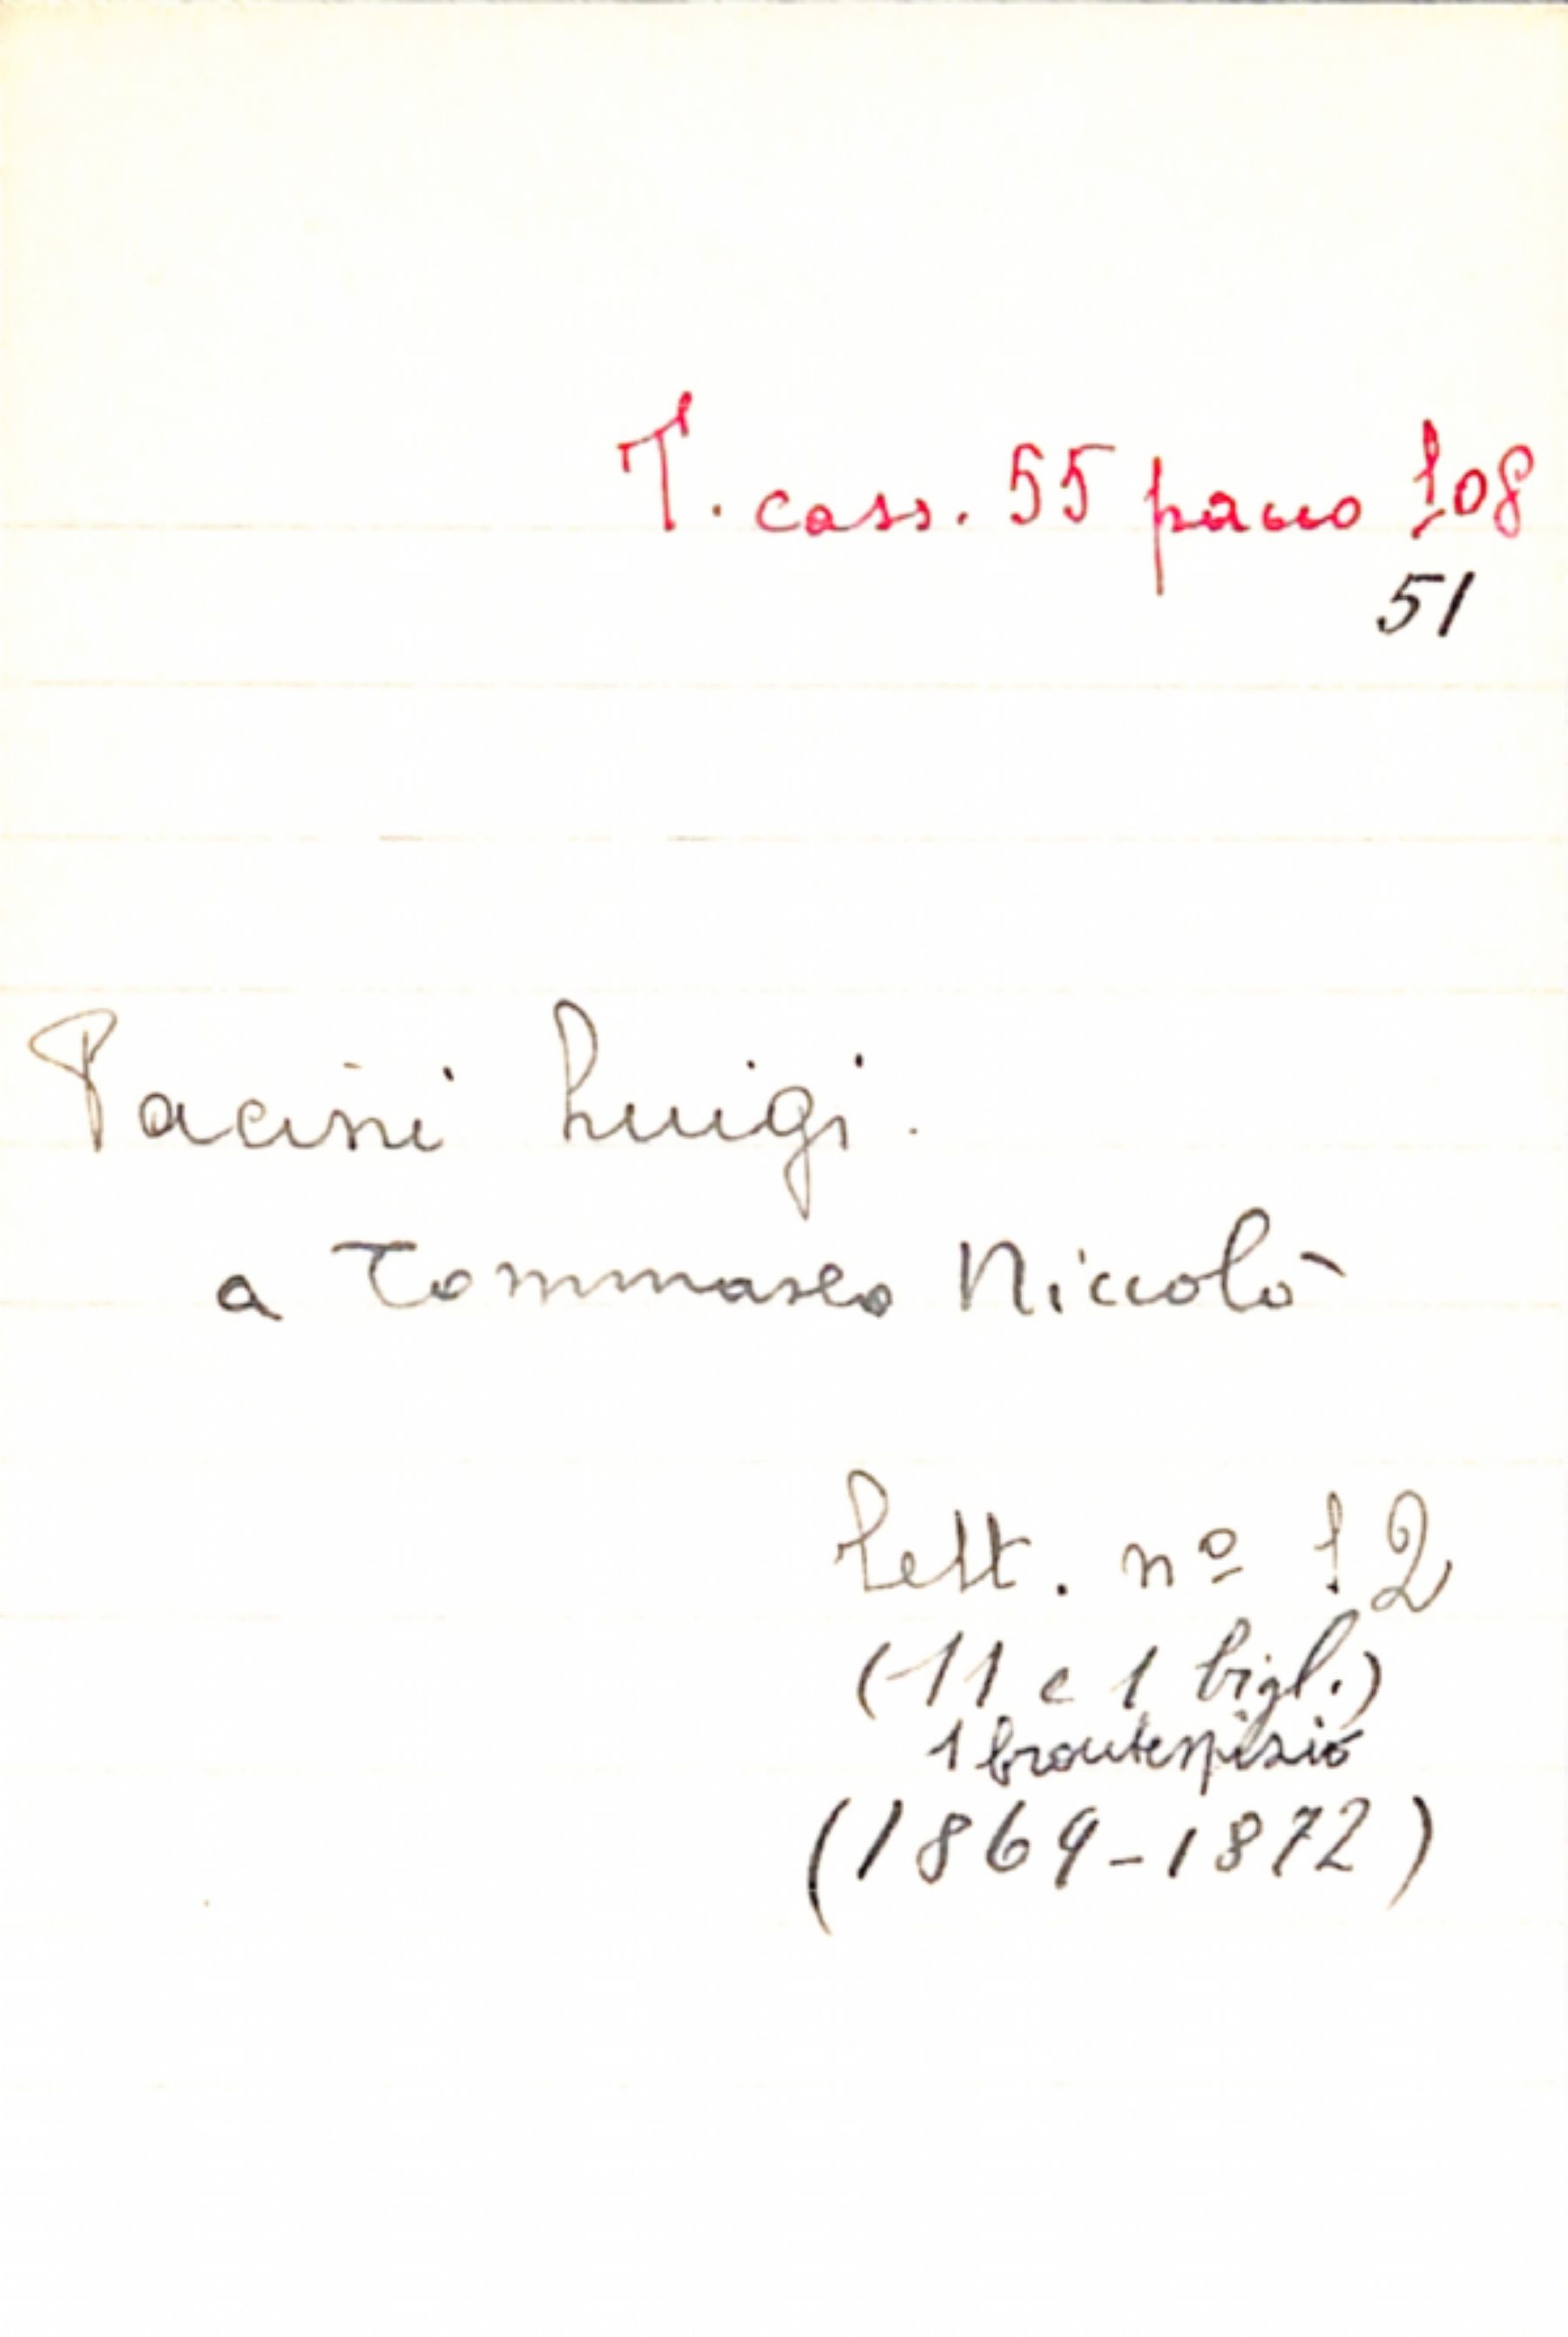 T. cass. 55 pacco 108
51
Pacini Luigi.
a Tommaseo Niccolò
Lett. nº 12
(11 e 1 bigl.)
1 frontespizio
(1869-1872)